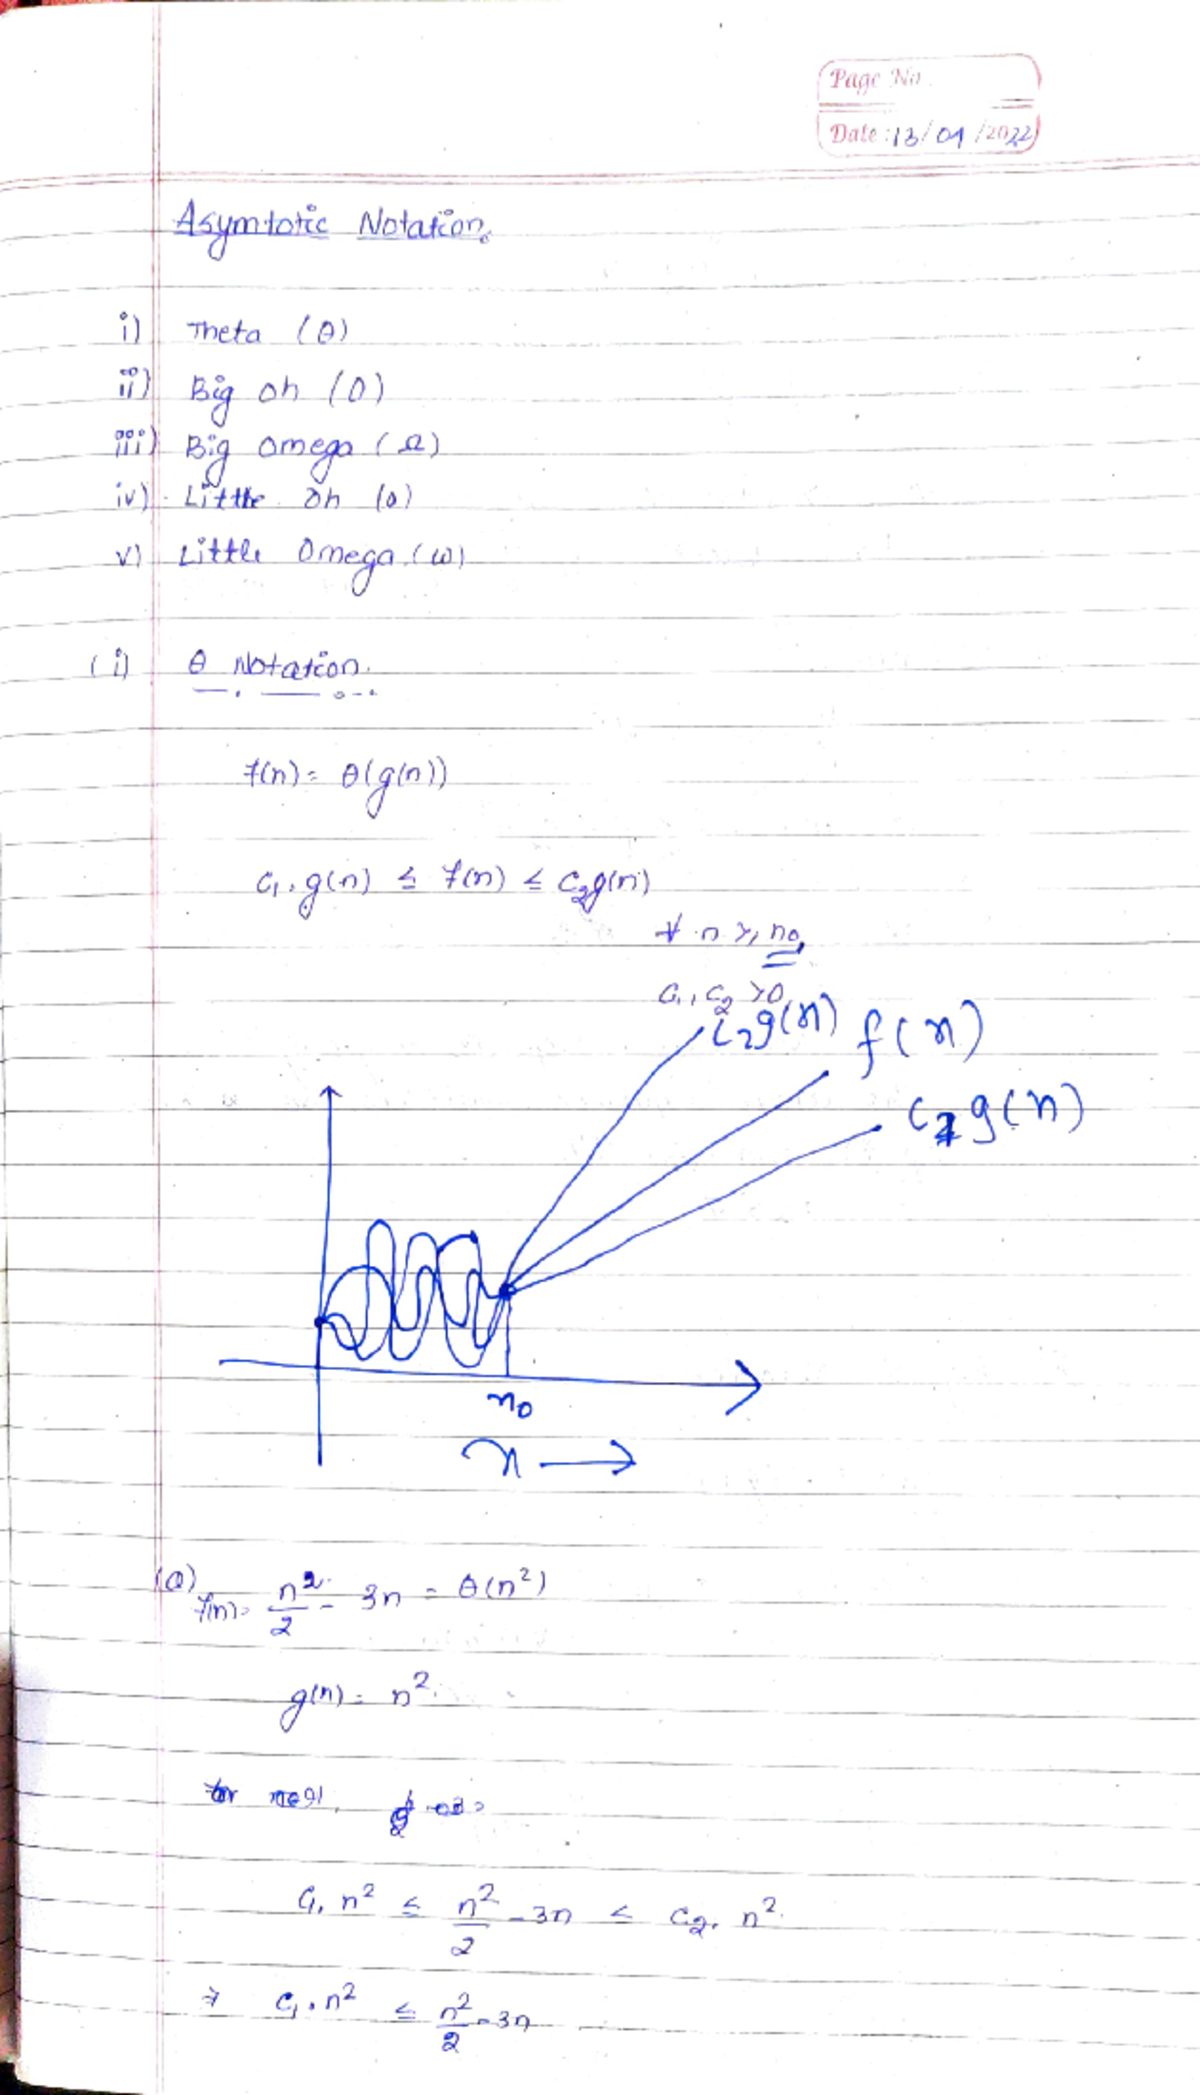 Page No.
Date : 13/01/2022
Asymtotic Notation.
i) Theta (θ)
ii) Big oh (O)
iii) Big omega (Ω)
iv) Little oh (o)
v) Little Omega (ω)
(i) θ Notation.
f(n) = θ(g(n))
C₁. g(n) ≤ f(n) ≤ C₂g(n)
∀ n ≥, n₀
C₁, C₂ >0
C₂g(n) f(n)
C₁g(n)
n₀
n →
(Q)
f(n) = n²/2 - 3n = θ(n²)
g(n) = n².
C₁. n² ≤ n²/2 - 3n < C₂. n².
⇒ C₁. n² ≤ n²/2 - 3n